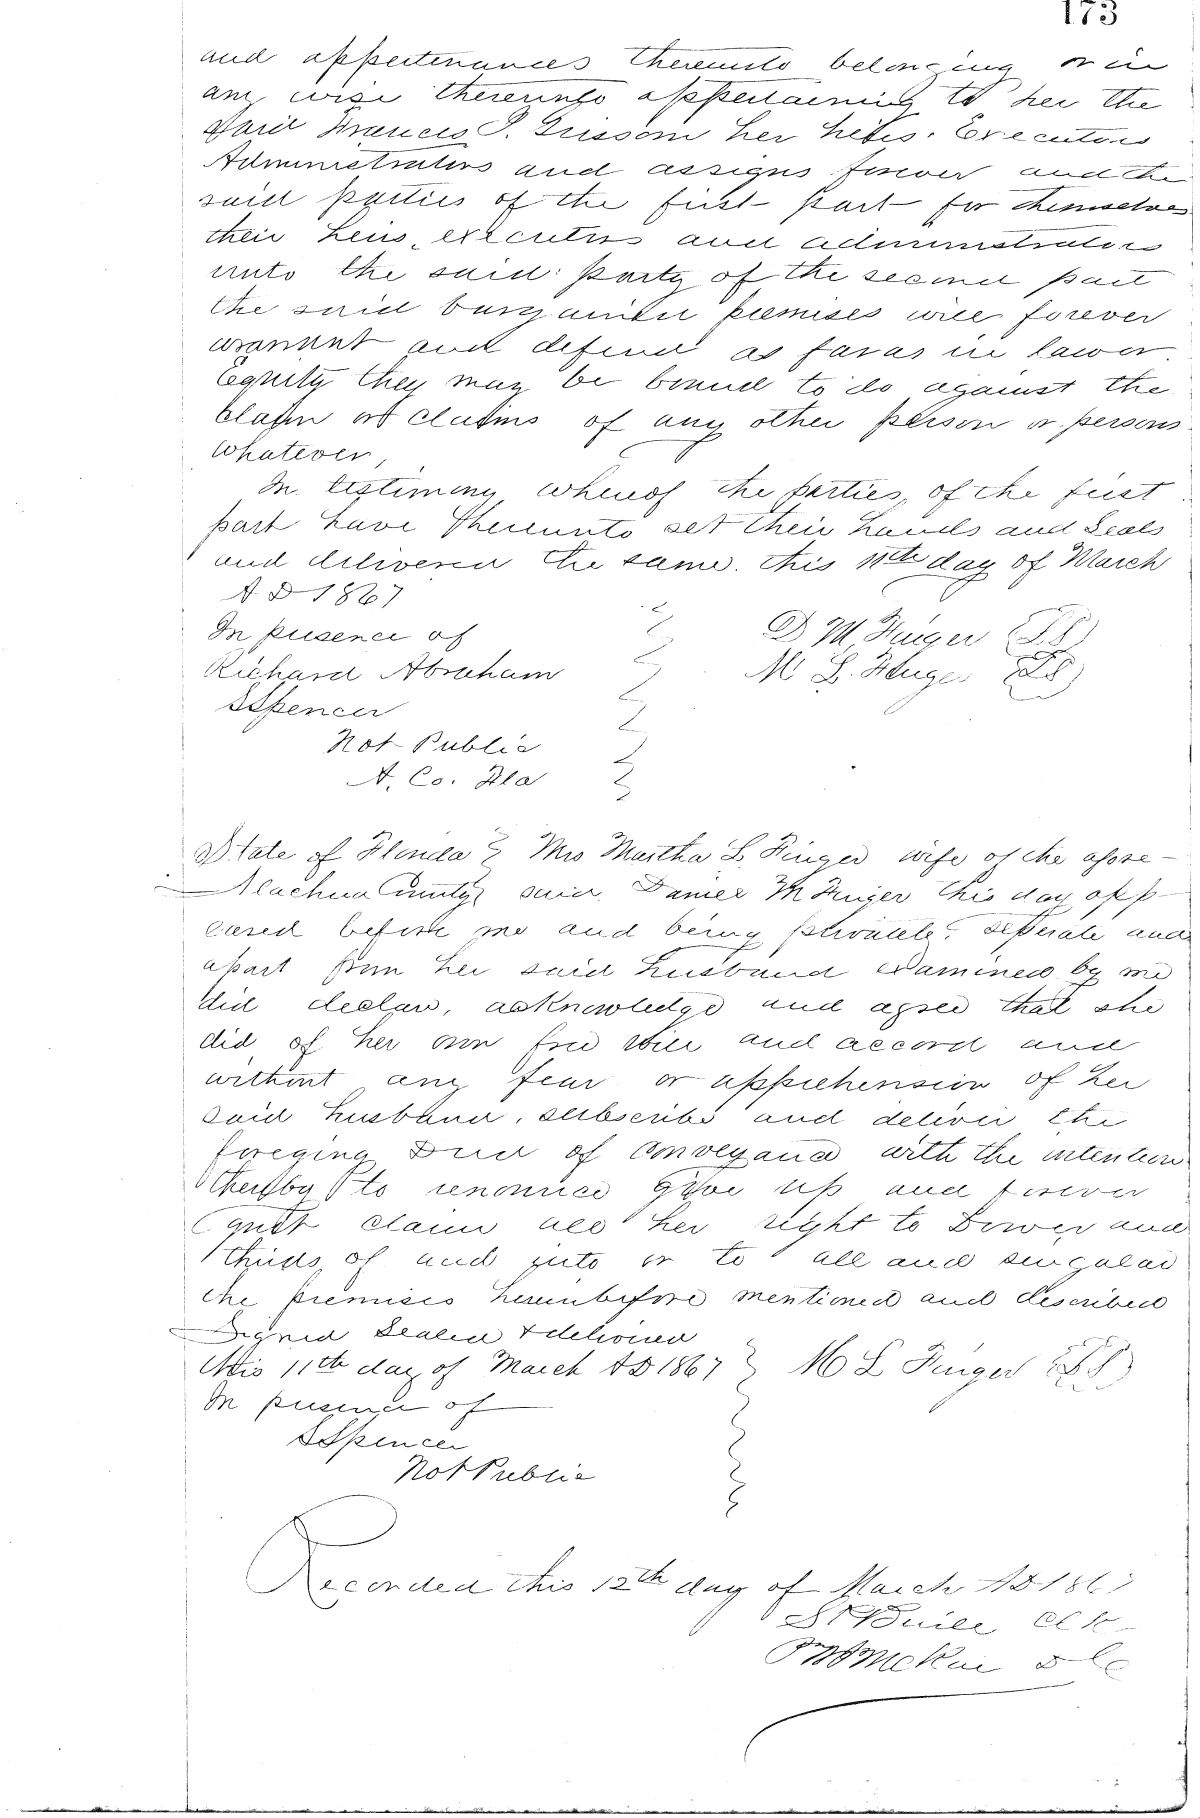 173
and appertenances thereunto belonging or in
any wise thereunto appertaining to her the
Said Frances P. Grissom her heirs. Executors
Administrators and assigns forever and the
said parties of the first part for themselves
their heirs, executors and administrators
unto the said party of the second part
the said bargained premises will forever
warrant and defend as far as in law or
Equity they may be bound to do against the
Claim or claims of any other person or persons
whatever,
In testimony whereof the parties, of the first
part have thereunto set their hands and Seals
and delivered the same. this 11th day of March
A D 1867
In presence of
D M, Finger (L.S)
Richard Abraham
M L. Finger (LS)
SSpencer
Not Public
A. Co. Fla
State of Florida Mrs Martha L. Finger wife of the afore-
Alachua County said Daniel M Finger this day app-
eared before me and being privately, seperate and
apart from her said husband examined by me
did declare, acknowledge and agree that she
did of her own free will and accord and
without any fear or apprehension of her
said husband, subscribe and deliver the
foregoing Deed of conveyance with the intention
thereby to renounce give up and forever
quit claim all her right to Dower and
thirds of and into or to all and singular
the premises hereinbefore mentioned and described
Signed Sealed & delivered
this 11th day of March AD 1867 M L Finger (LS)
In presence of
SSpencer
Not Public
Recorded this 12th day of March AD 186
Clk
McKae D C